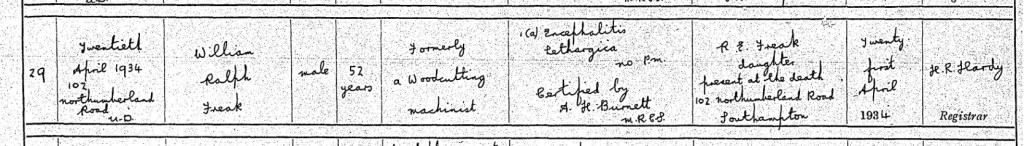 29
Twentieth
April 1934
102
Northumberland
Road
U.D.
William
Ralph
Freak
male
52
years
Formerly
a Woodcutting
machinist
1(a) Encephalitis
Lethargica
no P.m.
Certified by
A. H. Burnett
M.R.C.S.
R. E. Freak
daughter
present at the death
102 Northumberland Road
Southampton
Twenty
first
April
1934
H.R. Hardy
Registrar